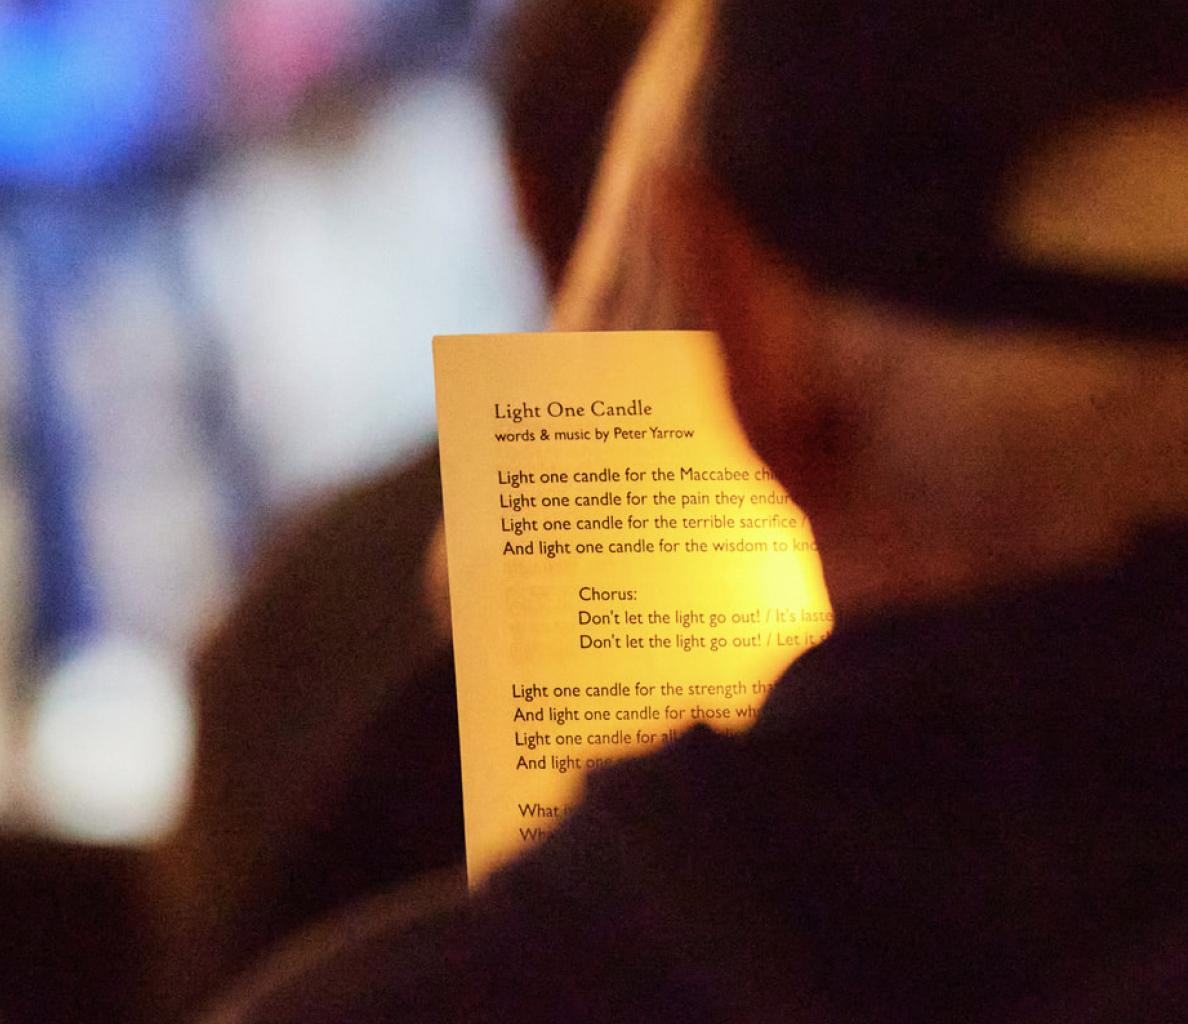 Light One Candle
words & music by Peter Yarrow
Light one candle for the Maccabee
Light one candle for the pain they
Light one candle for the terrible sacrifice /
And light one candle for the wisdom to
Chorus:
Don't let the light go out! / It's
Don't let the light go out! / Let it
Light one candle for the strength
And light one candle for those
Light one candle for all
And light one
What